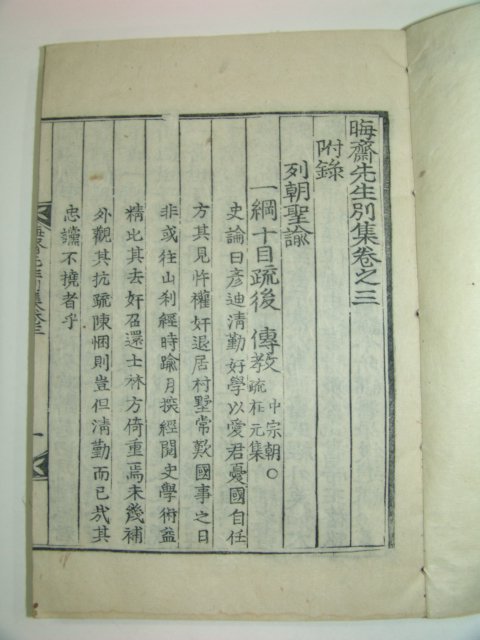 晦齋先生別集卷之三
附錄
列朝聖諭
一綱十目疏後 傳敎 中宗朝○疏在元集
史論曰彦迪淸勤好學以愛君憂國自任
方其見忤權奸退居村墅常歎國事之日
非或往山刹經時踰月探經閱史學術益
精比其去奸召還士林方倚重焉未幾補
外觀其抗疏陳悃則豈但淸勤而已哉其
忠讜不撓者乎
晦齋先生別集卷三
一